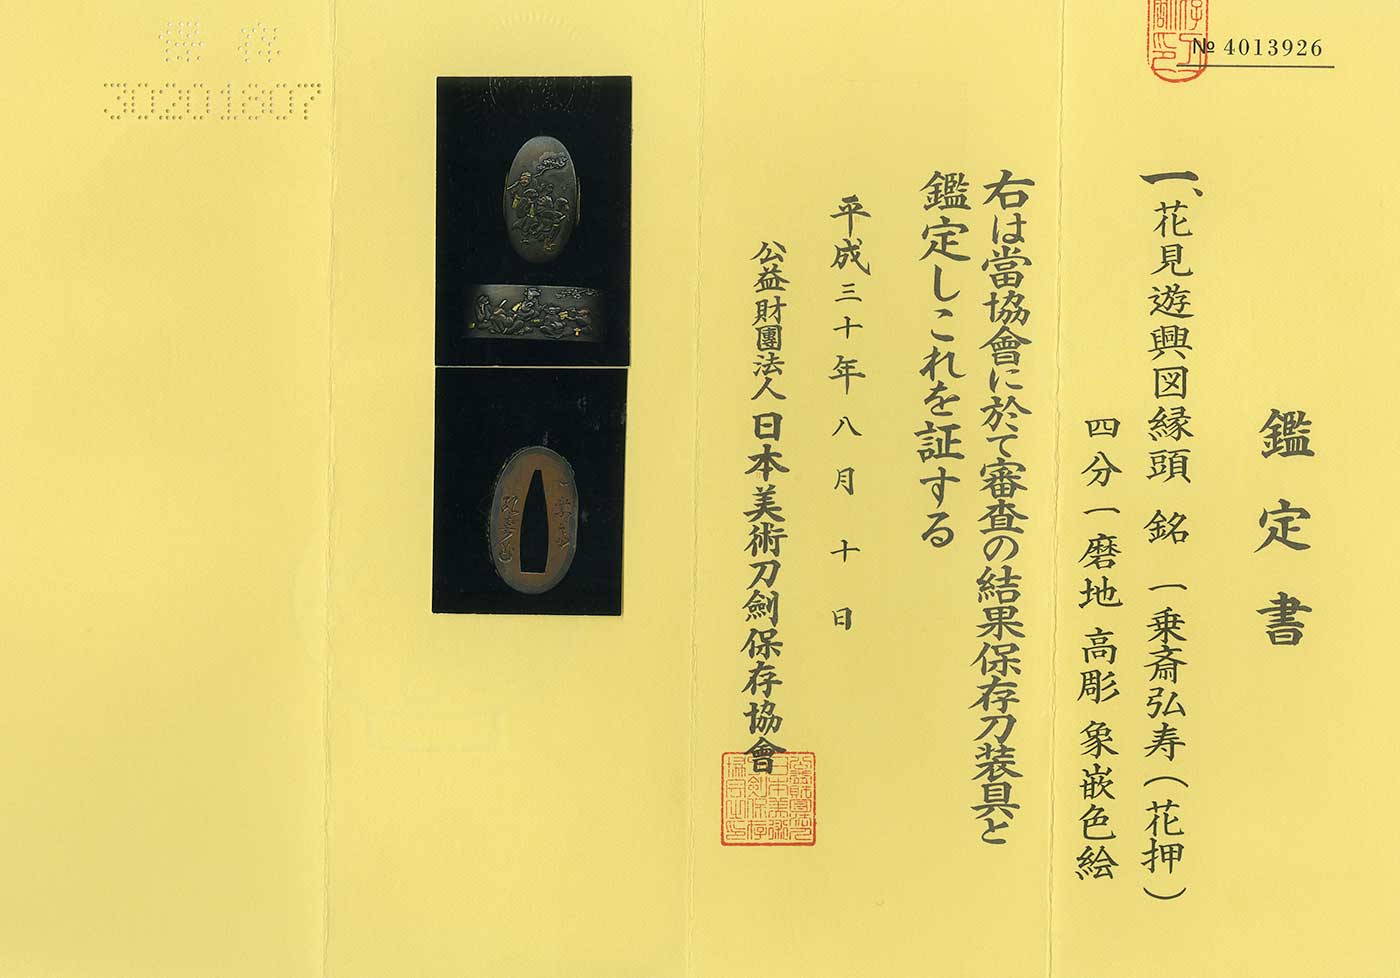 № 4013926
鑑定書
一、花見遊興図縁頭 銘 一乗斎弘寿(花押)
四分一磨地 高彫 象嵌色絵
右は當協會に於て審査の結果保存刀装具と
鑑定しこれを証する
平成三十年八月十日
公益財團法人 日本美術刀劍保存協會
保存
30201807